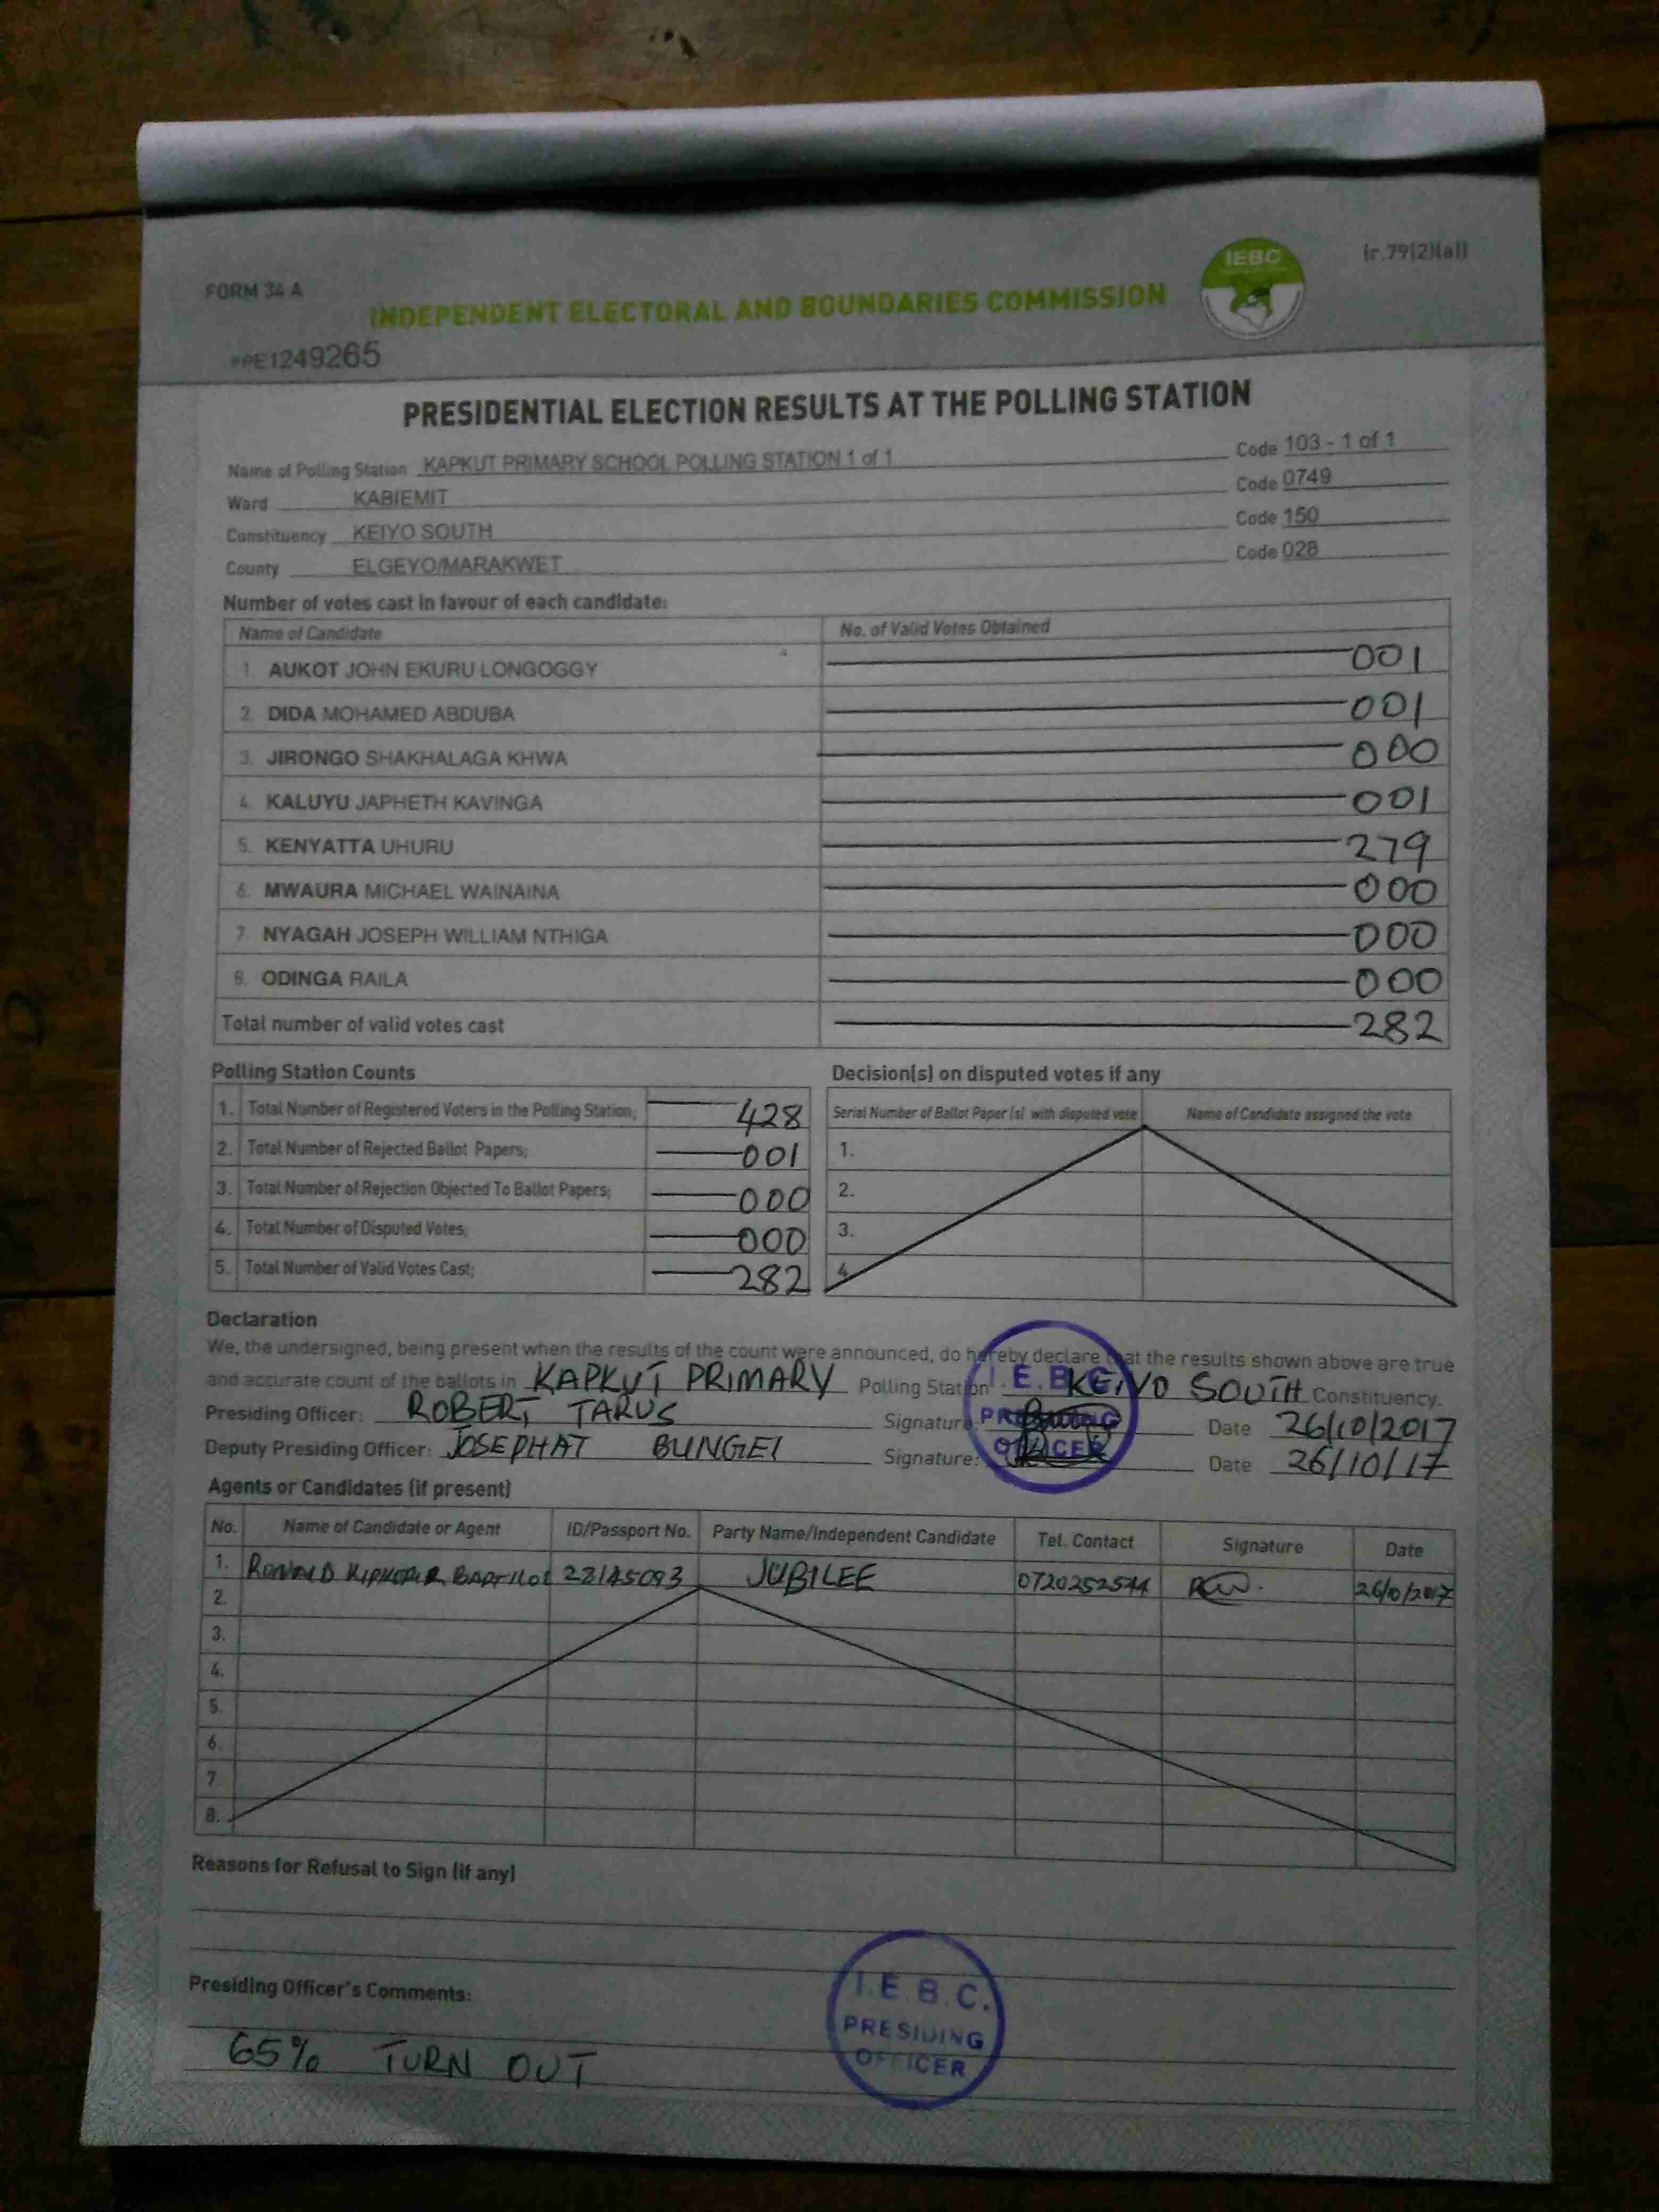 FORM 34 A
IEBC
(r.79(2)(a))
INDEPENDENT ELECTORAL AND BOUNDARIES COMMISSION
#PE1249265
PRESIDENTIAL ELECTION RESULTS AT THE POLLING STATION
Name of Polling Station KAPKUT PRIMARY SCHOOL POLLING STATION 1 of 1 Code 103 - 1 of 1
Ward KABIEMIT Code 0749
Constituency KEIYO SOUTH Code 150
County ELGEYO/MARAKWET Code 028
Number of votes cast in favour of each candidate:
Name of Candidate No. of Valid Votes Obtained
1. AUKOT JOHN EKURU LONGOGGY 001
2. DIDA MOHAMED ABDUBA 001
3. JIRONGO SHAKHALAGA KHWA 000
4. KALUYU JAPHETH KAVINGA 001
5. KENYATTA UHURU 279
6. MWAURA MICHAEL WAINAINA 000
7. NYAGAH JOSEPH WILLIAM NTHIGA 000
8. ODINGA RAILA 000
Total number of valid votes cast 282
Polling Station Counts
1. Total Number of Registered Voters in the Polling Station; 428
2. Total Number of Rejected Ballot Papers; 001
3. Total Number of Rejection Objected To Ballot Papers; 000
4. Total Number of Disputed Votes; 000
5. Total Number of Valid Votes Cast; 282
Decision(s) on disputed votes if any
Serial Number of Ballot Paper (s) with disputed vote Name of Candidate assigned the vote
1.
2.
3.
4.
Declaration
We, the undersigned, being present when the results of the count were announced, do hereby declare that the results shown above are true
and accurate count of the ballots in KAPKUT PRIMARY Polling Station KEIYO SOUTH Constituency.
Presiding Officer: ROBERT TARUS Signature: Date 26/10/2017
Deputy Presiding Officer: JOSEPHAT BUNGEI Signature: Date 26/10/17
I.E.B.C.
PRESIDING
OFFICER
Agents or Candidates (if present)
No. Name of Candidate or Agent ID/Passport No. Party Name/Independent Candidate Tel. Contact Signature Date
1. RONALD 28145093 JUBILEE 0720252544 26/10/2017
2.
3.
4.
5.
6.
7.
8.
Reasons for Refusal to Sign (if any)
Presiding Officer's Comments:
65% TURN OUT
I.E.B.C.
PRESIDING
OFFICER